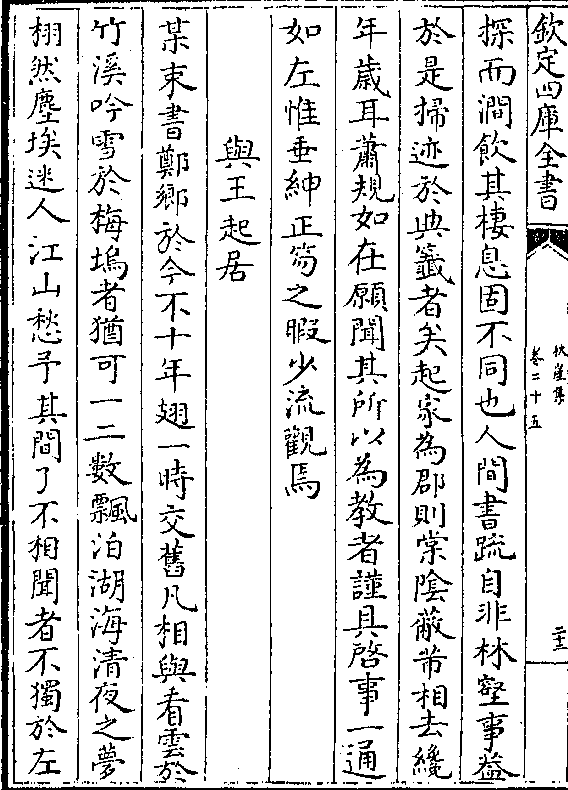 欽定四庫全書
卷二十五
探而澗飲其棲息固不同也人間書疏自非林壑事益
於是掃迹於典籤者矣起家為郡則棠陰蔽芾相去纔
年歲耳蕭規如在願聞其所以為教者謹具啓事一通
如左惟垂紳正笏之暇少流觀焉
與王起居
某束書鄭鄉於今不十年翅一時交舊凡相與看雲於
竹溪吟雪於梅塢者猶可一二數飄泊湖海清夜之夢
栩然塵埃迷人江山愁予其間了不相聞者不獨於左